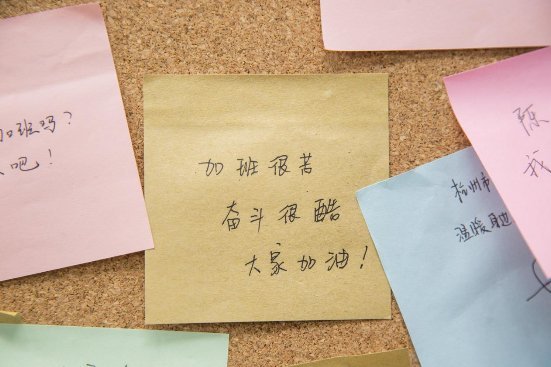 加班吗？
吧！
加班很苦
奋斗很酷
大家加油！
杭州市
温暖身边
我